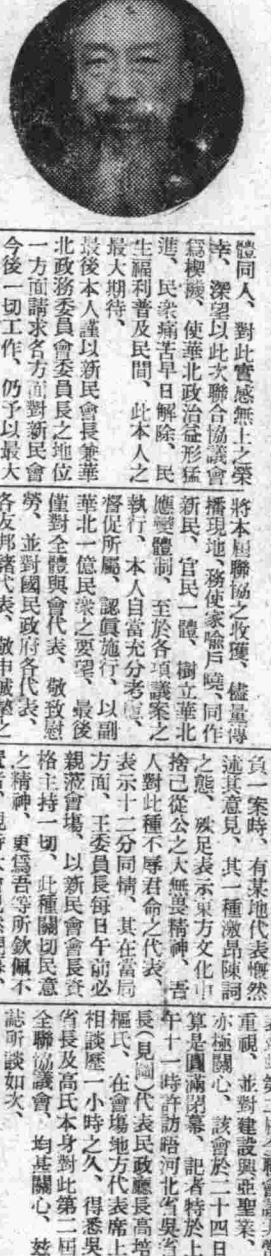 體同人、對此實感無上之榮
幸、深望以此次聯合協議會
爲楔機、使華北政治益形猛
進、民衆痛苦早日解除、民
生福利普及民間、此本人之
最大期待、
最後本人謹以新民會長兼華
北政務委員會委員長之地位
一方面請求各方面對新民會
今後一切工作、仍予以最大
將本屆聯協之收獲、儘量傳
播現地、務使家喻戶曉、同作
新民、官民一體、樹立華北
應變體制、至於各項議案之
執行、本人自當充分考慮、
督促所屬、認眞施行、以副
華北一億民衆之要望、最後
僅對全體與會代表、敬致慰
勞、並對國民政府各代表、
各友邦諸代表、敬申誠摯之
負一案時、有某地代表慨然
述其意見、其一種激昂陳詞
之態、殊足表示東方文化中
捨己從公之大無畏精神、吾
人對此種不辱君命之代表、
表示十二分同情、其在當局
方面、王委員長每日午前必
親蒞會場、以新民會會長資
格主持一切、此種關切民意
之精神、更爲吾等所欽佩不
重視、並對建設興亞聖業、
亦極關心、該會於二十四日
算是圓滿閉幕、記者特於上
午十一時許訪晤河北省吳省
長(見圖)代表民政廳長高培
樞氏、在會場地方代表席上
相談歷一小時之久、得悉吳
省長及高氏本身對此第二屆
全聯協議會、均甚關心、茲
誌所談如次、